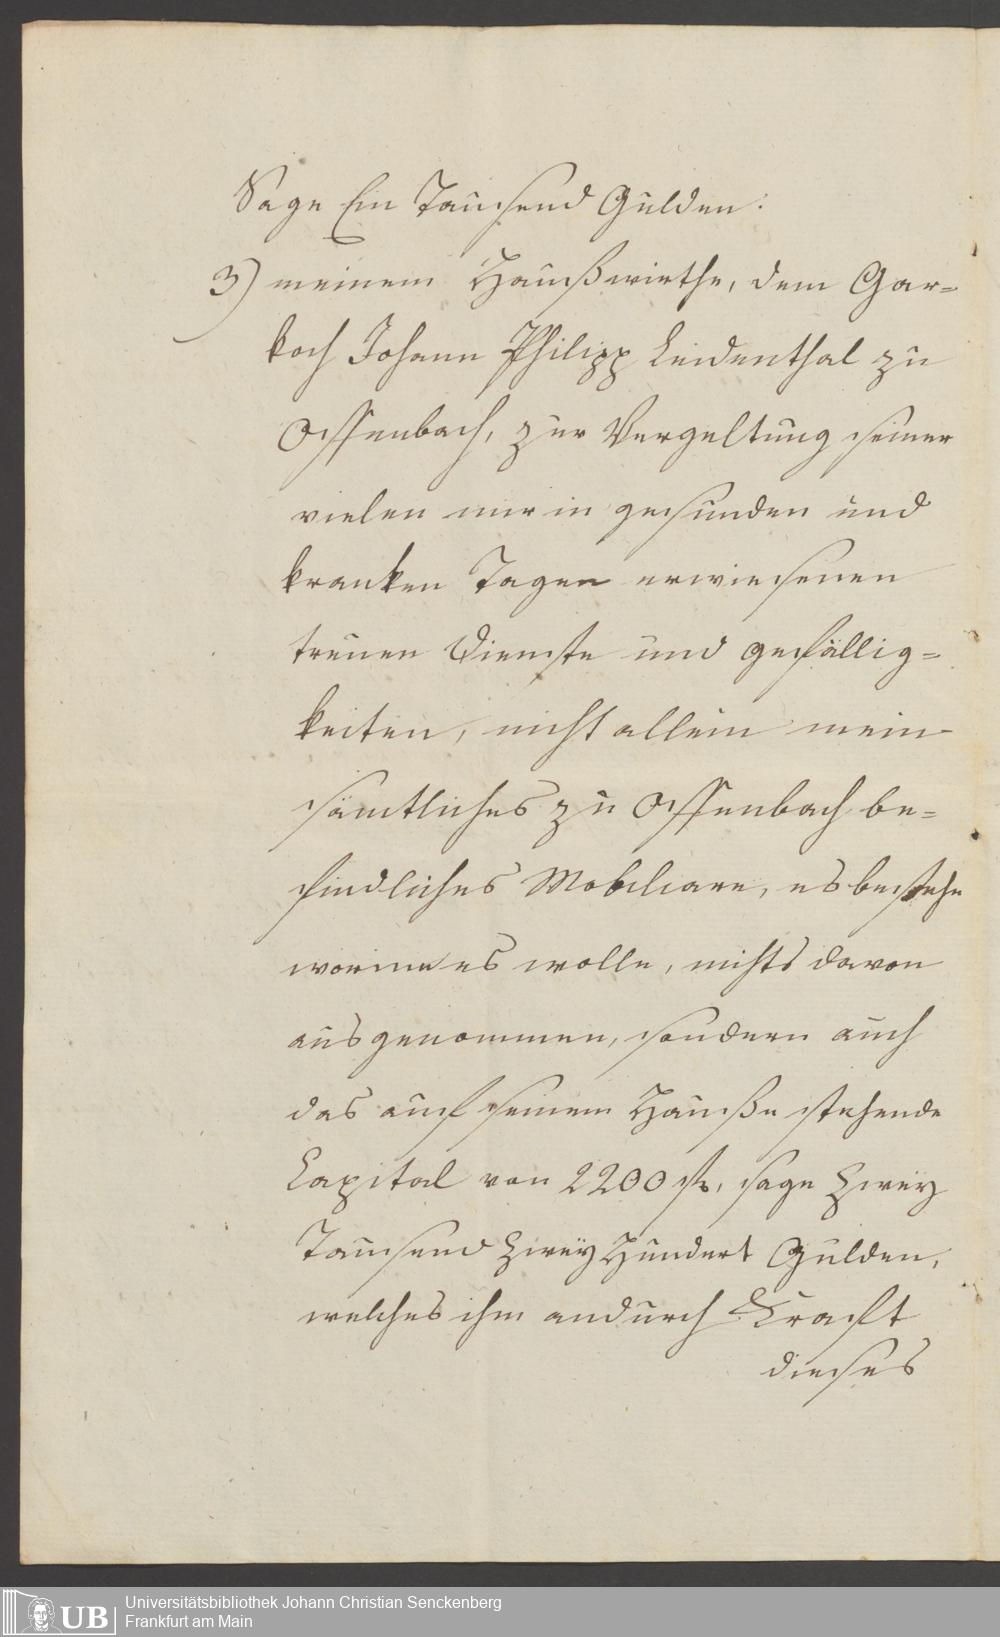 Sage Ein Tausend Gulden.
3) meinem Haußwirthe, dem Gar=
koch Johann Philipp Leidenthal zu
Offenbach, zur Vergeltung seiner
vielen mir in gesunden und
kranken Tagen erwiesenen
treuen Dienste und Gefällig=
keiten, nicht allein mein
sämtliches zu Offenbach be=
findliches Mobiliare, es bestehe
worinn es wolle, nichts davon
ausgenommen, sondern auch
das auf seinem Hauße stehende
Capital von 2200 fl., sage Zwey
Tausend Zwey Hundert Gulden,
welches ihm andurch Kraft
dieses
UB
Universitätsbibliothek Johann Christian Senckenberg
Frankfurt am Main